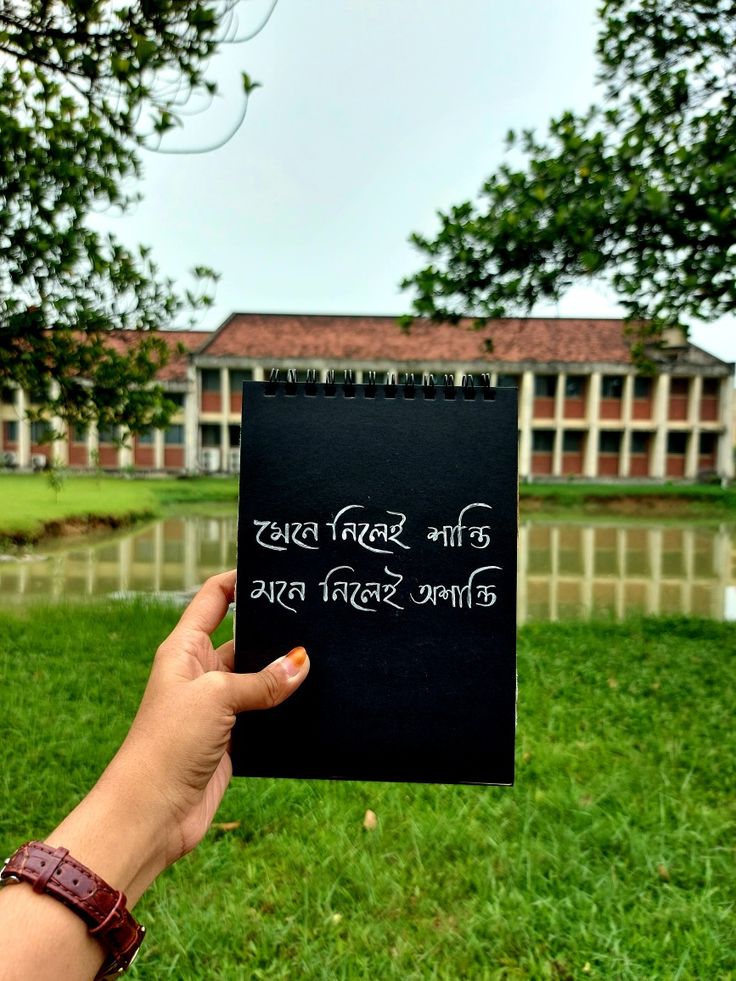 মেনে নিলেই শান্তি
মনে নিলেই অশান্তি